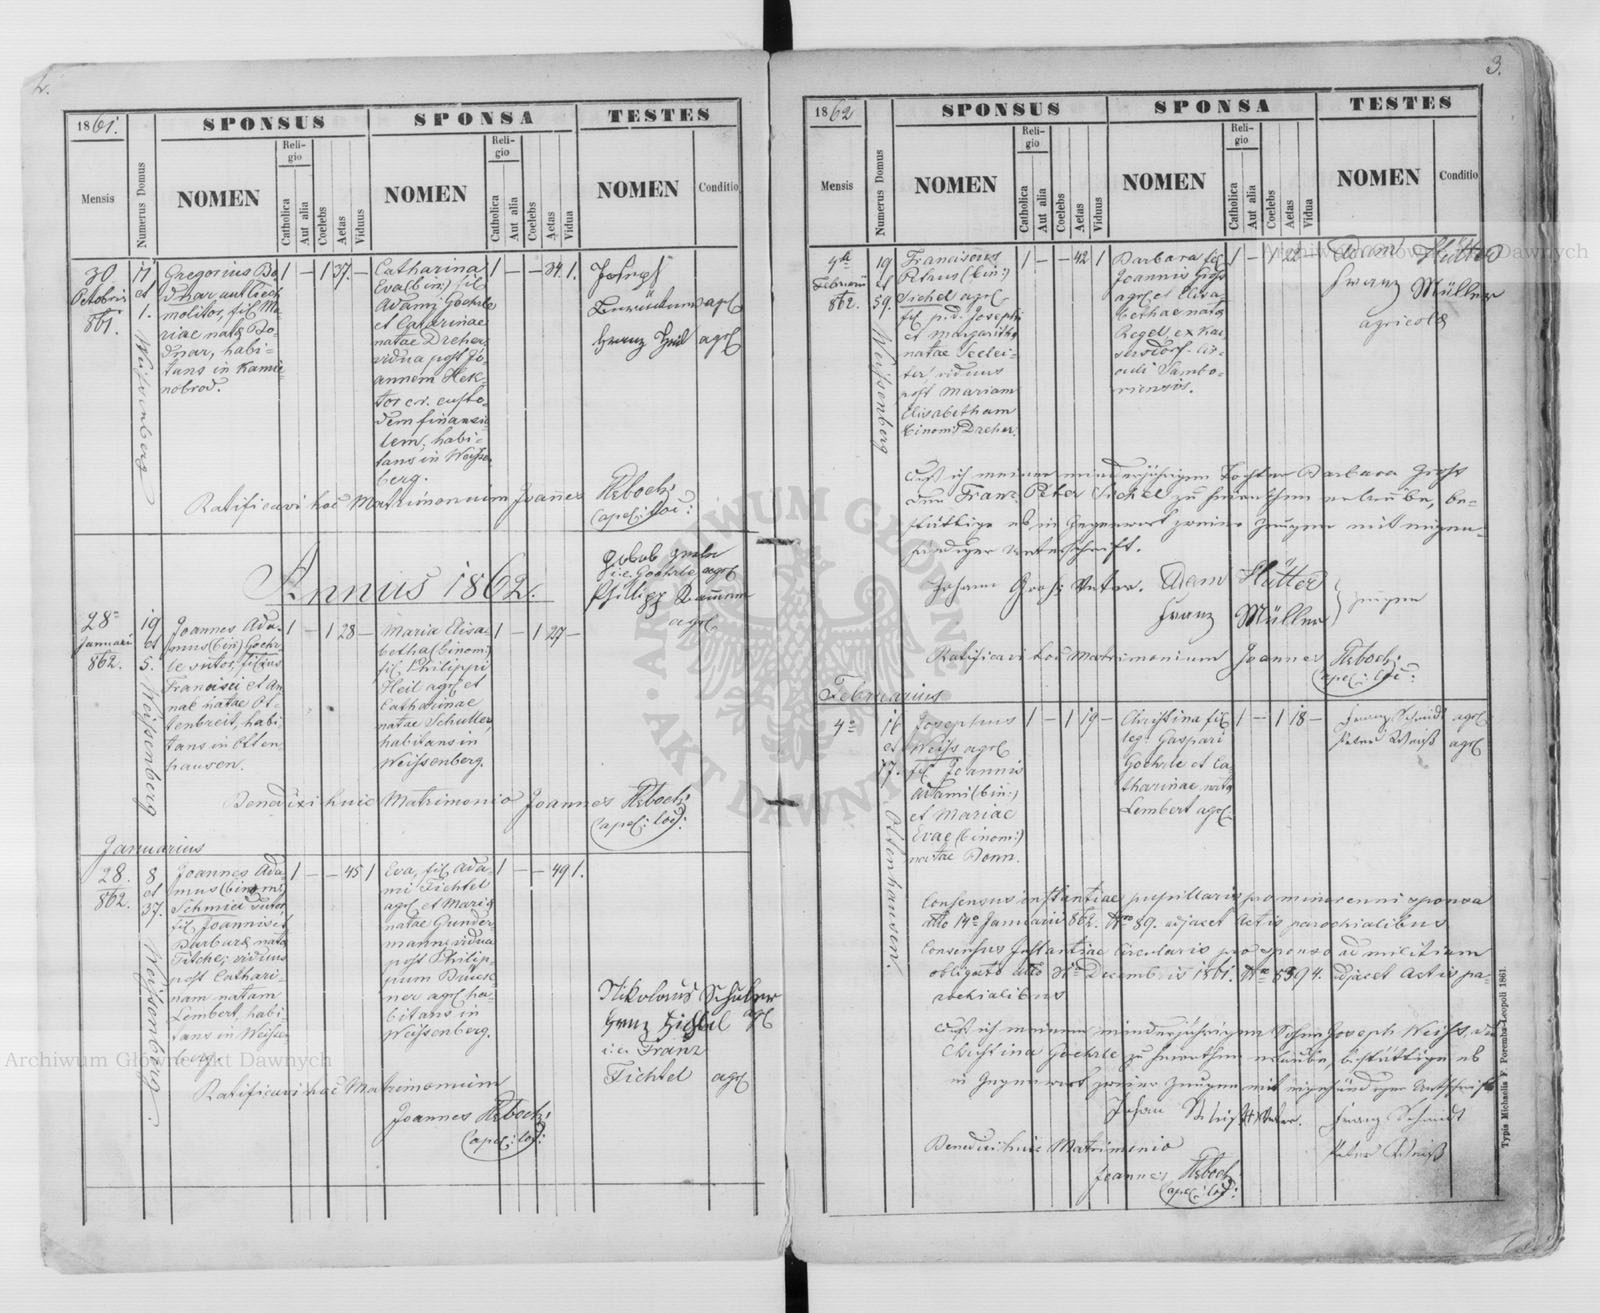 2.
1861.
SPONSUS
SPONSA
TESTES
Mensis
Numerus Domus
NOMEN
Religio
Catholica
Aut alia
Coelebs
Aetas
Viduus
NOMEN
Religio
Catholica
Aut alia
Coelebs
Aetas
Vidua
NOMEN
Conditio
30.
Octobris
861.
17
et
1.
Weissenberg
Gregorius Bo
dnar
molitor, fil. Ma
riae natae Bo-
dnar, habi-
tans in Kamie
nobrod.
1 – 1 37. –
Catharina
Eva (bin:) fil.
Adami Goehrle
et Catharinae
natae Dreher,
vidua post Jo
annem Hek-
tor custo-
dem finanzia
lem, habi-
tans in Weissen
berg.
1 – – 34. 1.
Joseph
agl
Franz agl
Ratificavi hoc Matrimonium Joannes
Capel: loc:
Annus 1862.
i.e. Goehrle agl
Philipp
agl
28a
Januarii
862.
19
et
5.
Weissenberg
Joannes Ada-
mus (bin:) Goehr-
le sutor, filius
Francisci et An
nae natae Ot-
tenbreit, habi
tans in Otten
hausen.
1 – 1 28 –
Maria Elisa-
betha (binom:)
fil. Philippi
Heil agl et
Catharinae
natae Schutter,
habitans in
Weissenberg.
1 – 1 27 –
Benedixi huic Matrimonio Joannes
Capel: loc:
Januarius
28.
862.
8
et
37.
Weissenberg.
Joannes Ada-
mus (binom:)
Schmid sutor,
fil. Joannis et
Barbarae natae
viduus
post Cathari-
nam natam
Lembert, habi
tans in Weissen
berg.
1 – – 45 1
Eva, fil. Ada-
mi Fichtel
agl et Mariae
natae Gunder
mann, vidua
post Philip-
pum Bruck-
ner agl ha-
bitans in
Weissenberg.
1 – – 49 1.
Nikolaus
agl
i.e. Franz
Fichtel agl
Ratificavi hoc Matrimonium
Joannes
Capel: loc:
3.
1862
SPONSUS
SPONSA
TESTES
Mensis
Numerus Domus
NOMEN
Religio
Catholica
Aut alia
Coelebs
Aetas
Viduus
NOMEN
Religio
Catholica
Aut alia
Coelebs
Aetas
Vidua
NOMEN
Conditio
4a
Februarii
862.
19
et
59.
Weissenberg
Franciscus
Petrus (bin:)
Sichel agl
fil. p.d. Josephi
et Margarithae
natae Seelei-
ter, viduus
post Mariam
Elisabetham
(binom:) Dreher.
1 – – 42 1
Barbara fil.
Joannis Gross
agl et Elisa
bethae natae
Regel ex Kai
sersdorf Cir-
culi Sambo-
riensis.
Adam Hütter
Franz Müller
agricolae
Dass ich meiner minderjährigen Tochter Barbara Gross
den Franz Peter Sichel zu heirathen erlaube, be-
stättige ich in Gegenwart zweier Zeugen mit eigen-
händiger Unterschrift.
Johann Gross Vater. Adam Hütter
Franz Müller
Zeugen
Ratificavi hoc Matrimonium Joannes
Capel: loc:
Februarius
4a
16
et
17.
Ottenhausen.
Josephus
Weiss agl
fil. Joannis
Adami (bin:)
et Mariae
Evae (binom:)
natae Bonn.
1 – 1 19 –
Christina fil.
leg. Gaspari
Goehrle et Ca
tharinae nata
Lembert agl.
1 – 1 18 –
Franz Schmidt agl
Peter Weiss agl
Consensus instantiae pupillaris pro minorenni sponsa
dtto 14a Januarii 862. Nro 89. adjacet Actis parochialibus
Consensus Instantiae Circularis pro sponso ad militiam
obligato dtto 31a Decembris 1861. Nro 8394. adjacet Actis pa-
rochialibus
Dass ich meinem minderjährigen Sohne Joseph Weiss, die
Christina Goehrle zu heirathen erlaube, bestättige ich
in Gegenwart zweier Zeugen mit eigenhändiger Unterschrift
Johan Weiss Vater. Franz Schmidt
Peter Weiss
Benedixi huic Matrimonio
Joannes
Capel: loc:
Typis Michaelis F. Poremba Leopoli 1861.
ARCHIWUM GŁÓWNE AKT DAWNYCH
Archiwum Główne Akt Dawnych
Archiwum Główne Akt Dawnych